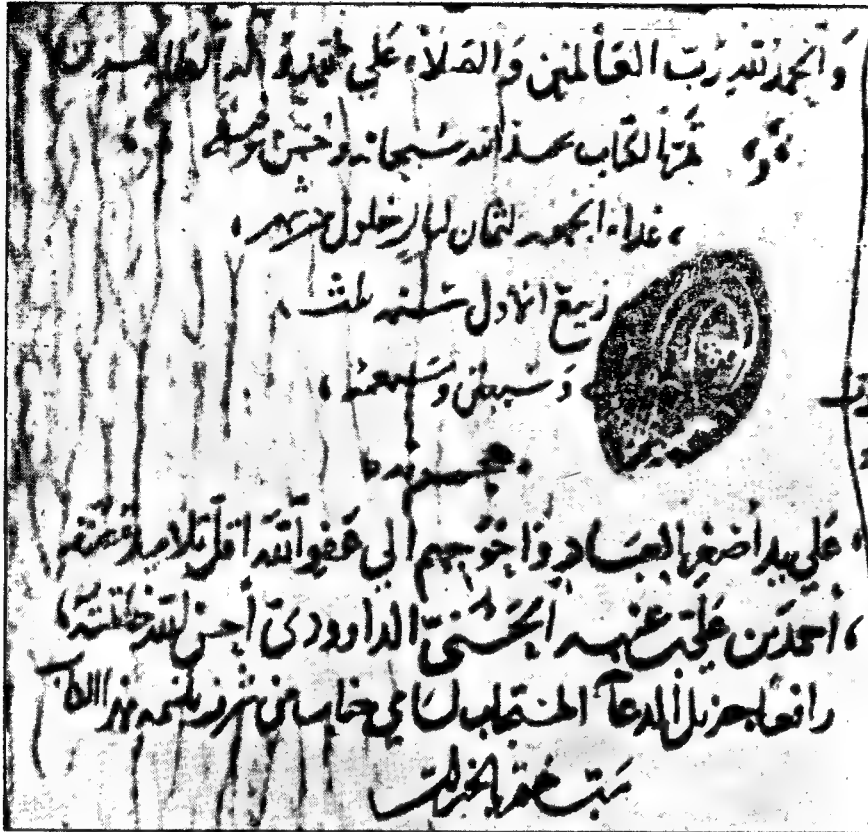 والحمد لله رب العالمين والصلاة علي محمد واله الطاهرين
تم الكتاب بحمد الله سبحانه وحسن توفيقه
غداء الجمعه لثمان ليال خلون من شهر
ربيع الاول سنه ثلث
وسبعين وسبعمئه
علي يد أضعف العباد وأحوجهم الي عفو الله اقل تلاميذ مصنفه
أحمد بن علي بن عنبه الحسني الداوودي أحسن الله خاتمته
رافعا جزيل الدعاء المستجاب لسامي جناب من شرف بنسخه هذا الكتاب
ختمت بالخيرات